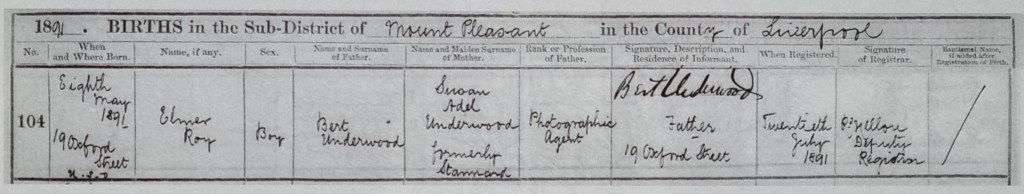 1891. BIRTHS in the Sub-District of Mount Pleasant in the County of Liverpool
No.
When and Where Born.
Name, if any.
Sex.
Name and Surname of Father.
Name and Maiden Surname of Mother.
Rank or Profession of Father.
Signature, Description, and Residence of Informant.
When Registered.
Signature of Registrar.
Baptismal Name, if added after Registration of Birth.
104
Eighth
May
1891
19 Oxford
Street
Elmer
Roy
Boy
Bert
Underwood
Susan
Adel
Underwood
formerly
Stannard
Photographic
Agent
Bert Underwood
Father
19 Oxford Street
Twentieth
July
1891
Deputy
Registrar